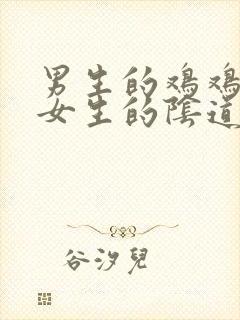 男生的鸡鸡
女生的陰道
谷汐兒